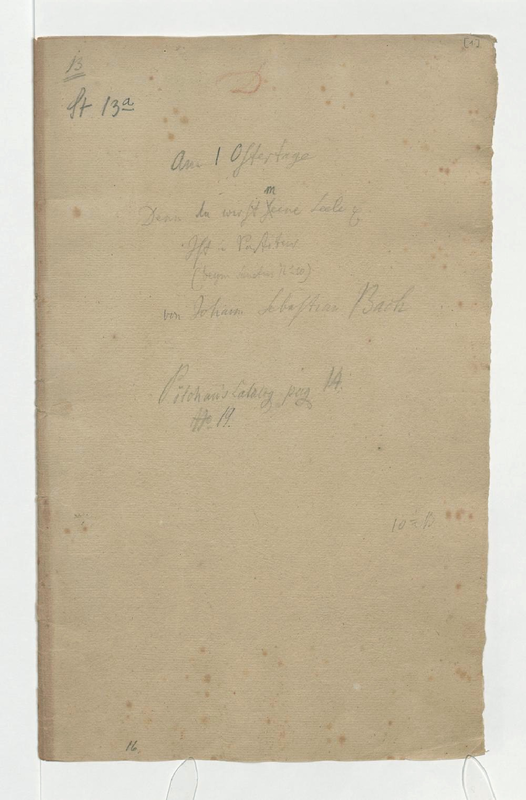 [1]
13
St 13a
D
Am 1 Ostertage
Denn du wirst meine Seele
Ist in Partitur
von Johann Sebastian Bach
Pölchau's Catalog pag 14.
No 19.
16